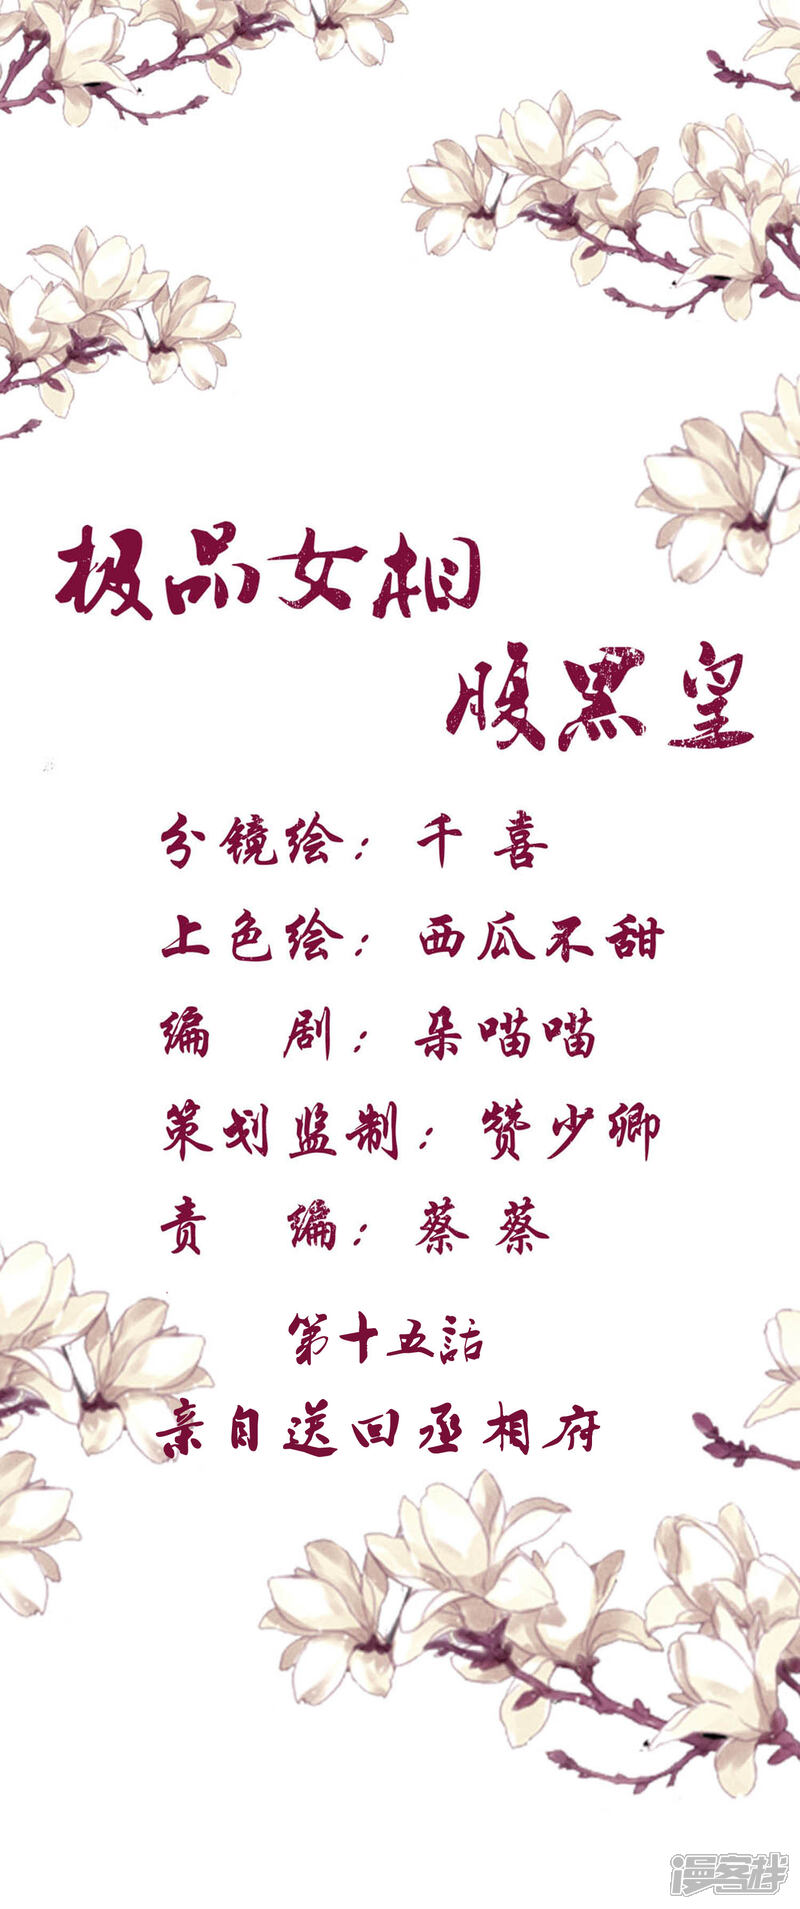 极品女相
腹黑皇
分镜绘：千喜
上色绘：西瓜不甜
编剧：朵喵喵
策划监制：赞少卿
责编：蔡蔡
第十五話
亲自送回丞相府
漫客栈